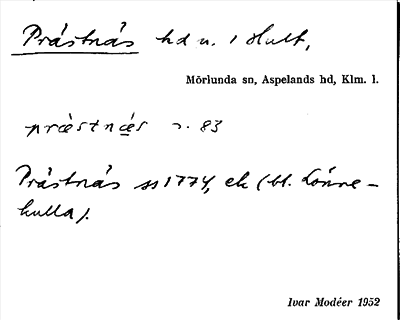 Prästnäs hd u. i Hult,
Mörlunda sn, Aspelands hd, Klm. l.
præstnæs s. 83
Prästnäs ss 1774, ek (bl. Lönne-
kulla).
Ivar Modéer 1952